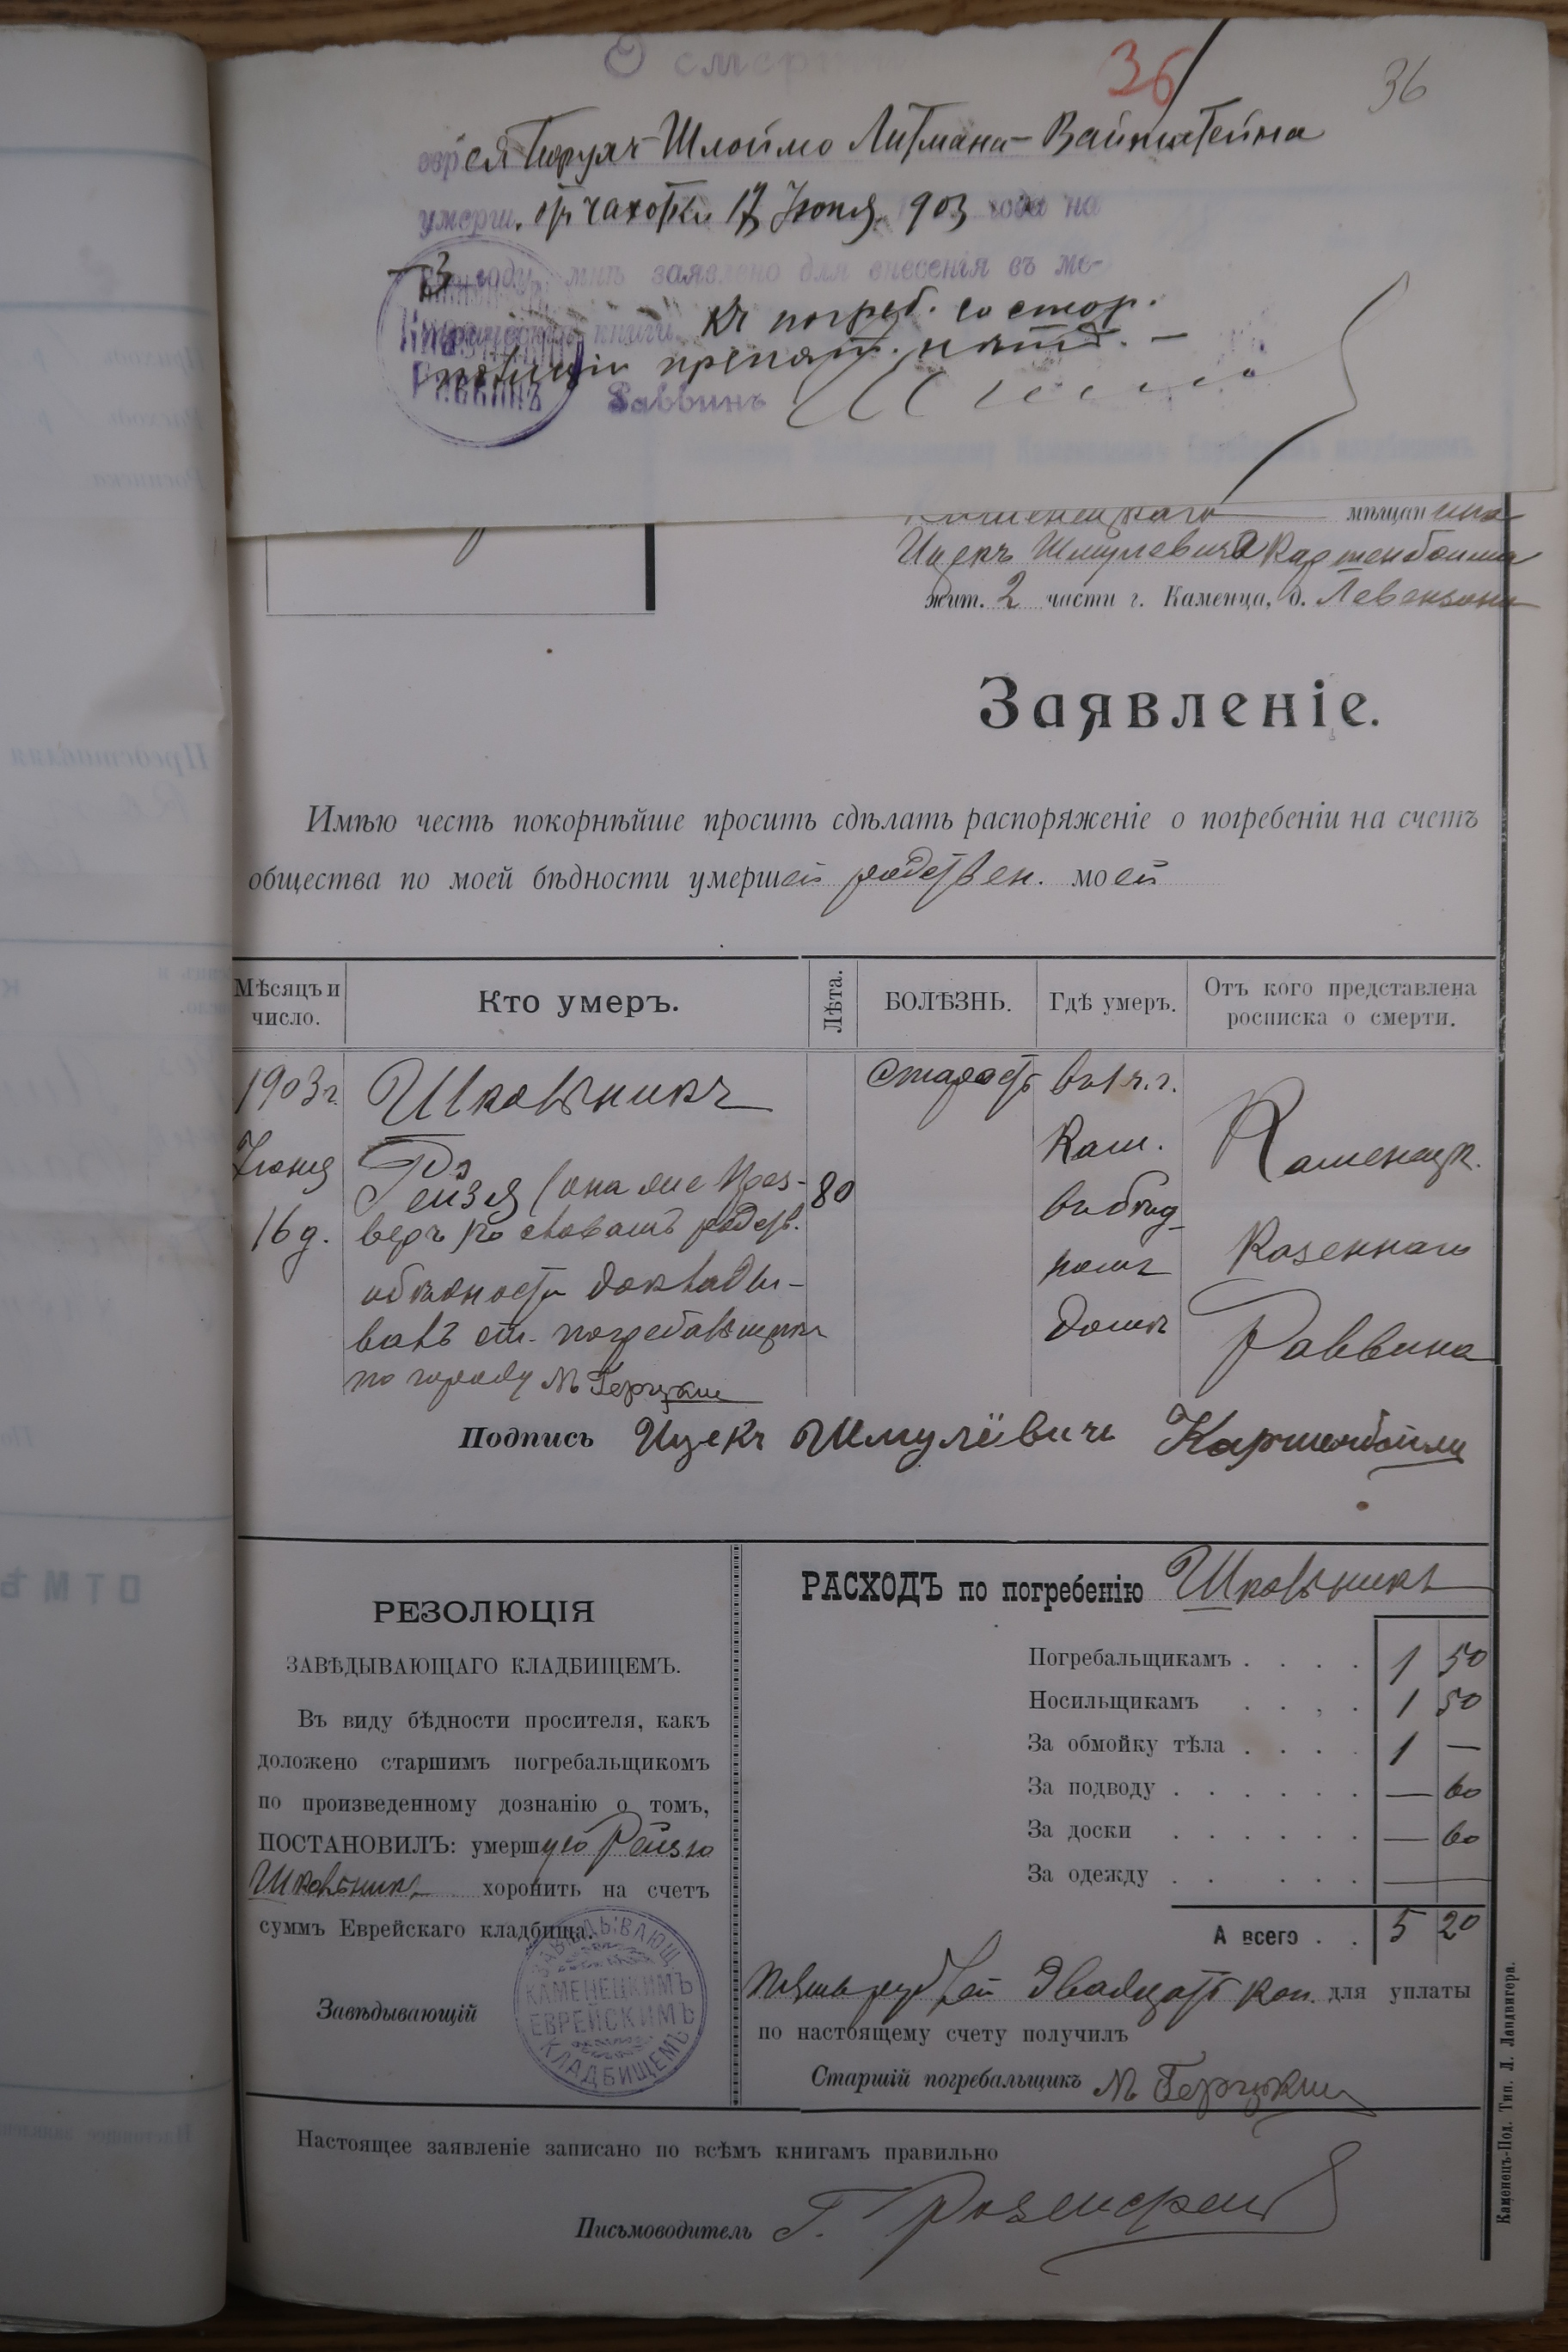 О смерти
36
36
еврея Борух-Шлоймо Литмана-Вайнштейна
умерш. отъ чахотки 17 Іюня 903 года на
3 году, мнѣ заявлено для внесенія въ ме-
трическія книги. Къ погреб. со стор.
полиціи препят. нѣтъ. —
Раввинъ
Каменецкаго мѣщанина
Ицекъ Шмулевича Картенбойма
жит. 2 части г. Каменца, д. Левензона
Заявленіе.
Имѣю честь покорнѣйше просить сдѣлать распоряженіе о погребеніи на счетъ
общества по моей бѣдности умершей родствен. моей
Мѣсяцъ и число.
Кто умеръ.
Лѣта.
БОЛѢЗНЬ.
Гдѣ умеръ.
Отъ кого представлена росписка о смерти.
1903 г.
Іюня
16 д.
Школьникъ
Рейзя (она же
по словамъ родств.
докладывалъ ст. погребальщикъ
по городу М Герцкис
80
Старость
въ г.
Кам.
въ
домѣ
Каменецк.
Казеннаго
Раввина
Подпись Ицекъ Шмулёвичъ
РЕЗОЛЮЦІЯ
ЗАВѢДЫВАЮЩАГО КЛАДБИЩЕМЪ.
Въ виду бѣдности просителя, какъ
доложено старшимъ погребальщикомъ
по произведенному дознанію о томъ,
ПОСТАНОВИЛЪ: умершую Рейзю
Школьникъ хоронить на счетъ
суммъ Еврейскаго кладбища.
Завѣдывающій
ЗАВѢДЫВАЮЩ.
КАМЕНЕЦКИМЪ
ЕВРЕЙСКИМЪ
КЛАДБИЩЕМЪ
РАСХОДЪ по погребенію Школьникъ
Погребальщикамъ . . . . 1 50
Носильщикамъ . . . . 1 50
За обмойку тѣла . . . . 1 —
За подводу . . . . . . — 60
За доски . . . . . . — 60
За одежду . . . . . . —
А всего . . 5 20
Пять рублей двадцать коп. для уплаты
по настоящему счету получилъ
Старшій погребальщикъ М Герцкис
Настоящее заявленіе записано по всѣмъ книгамъ правильно
Письмоводитель Г.
Каменецъ-Под. Тип. Л. Ландвигера.